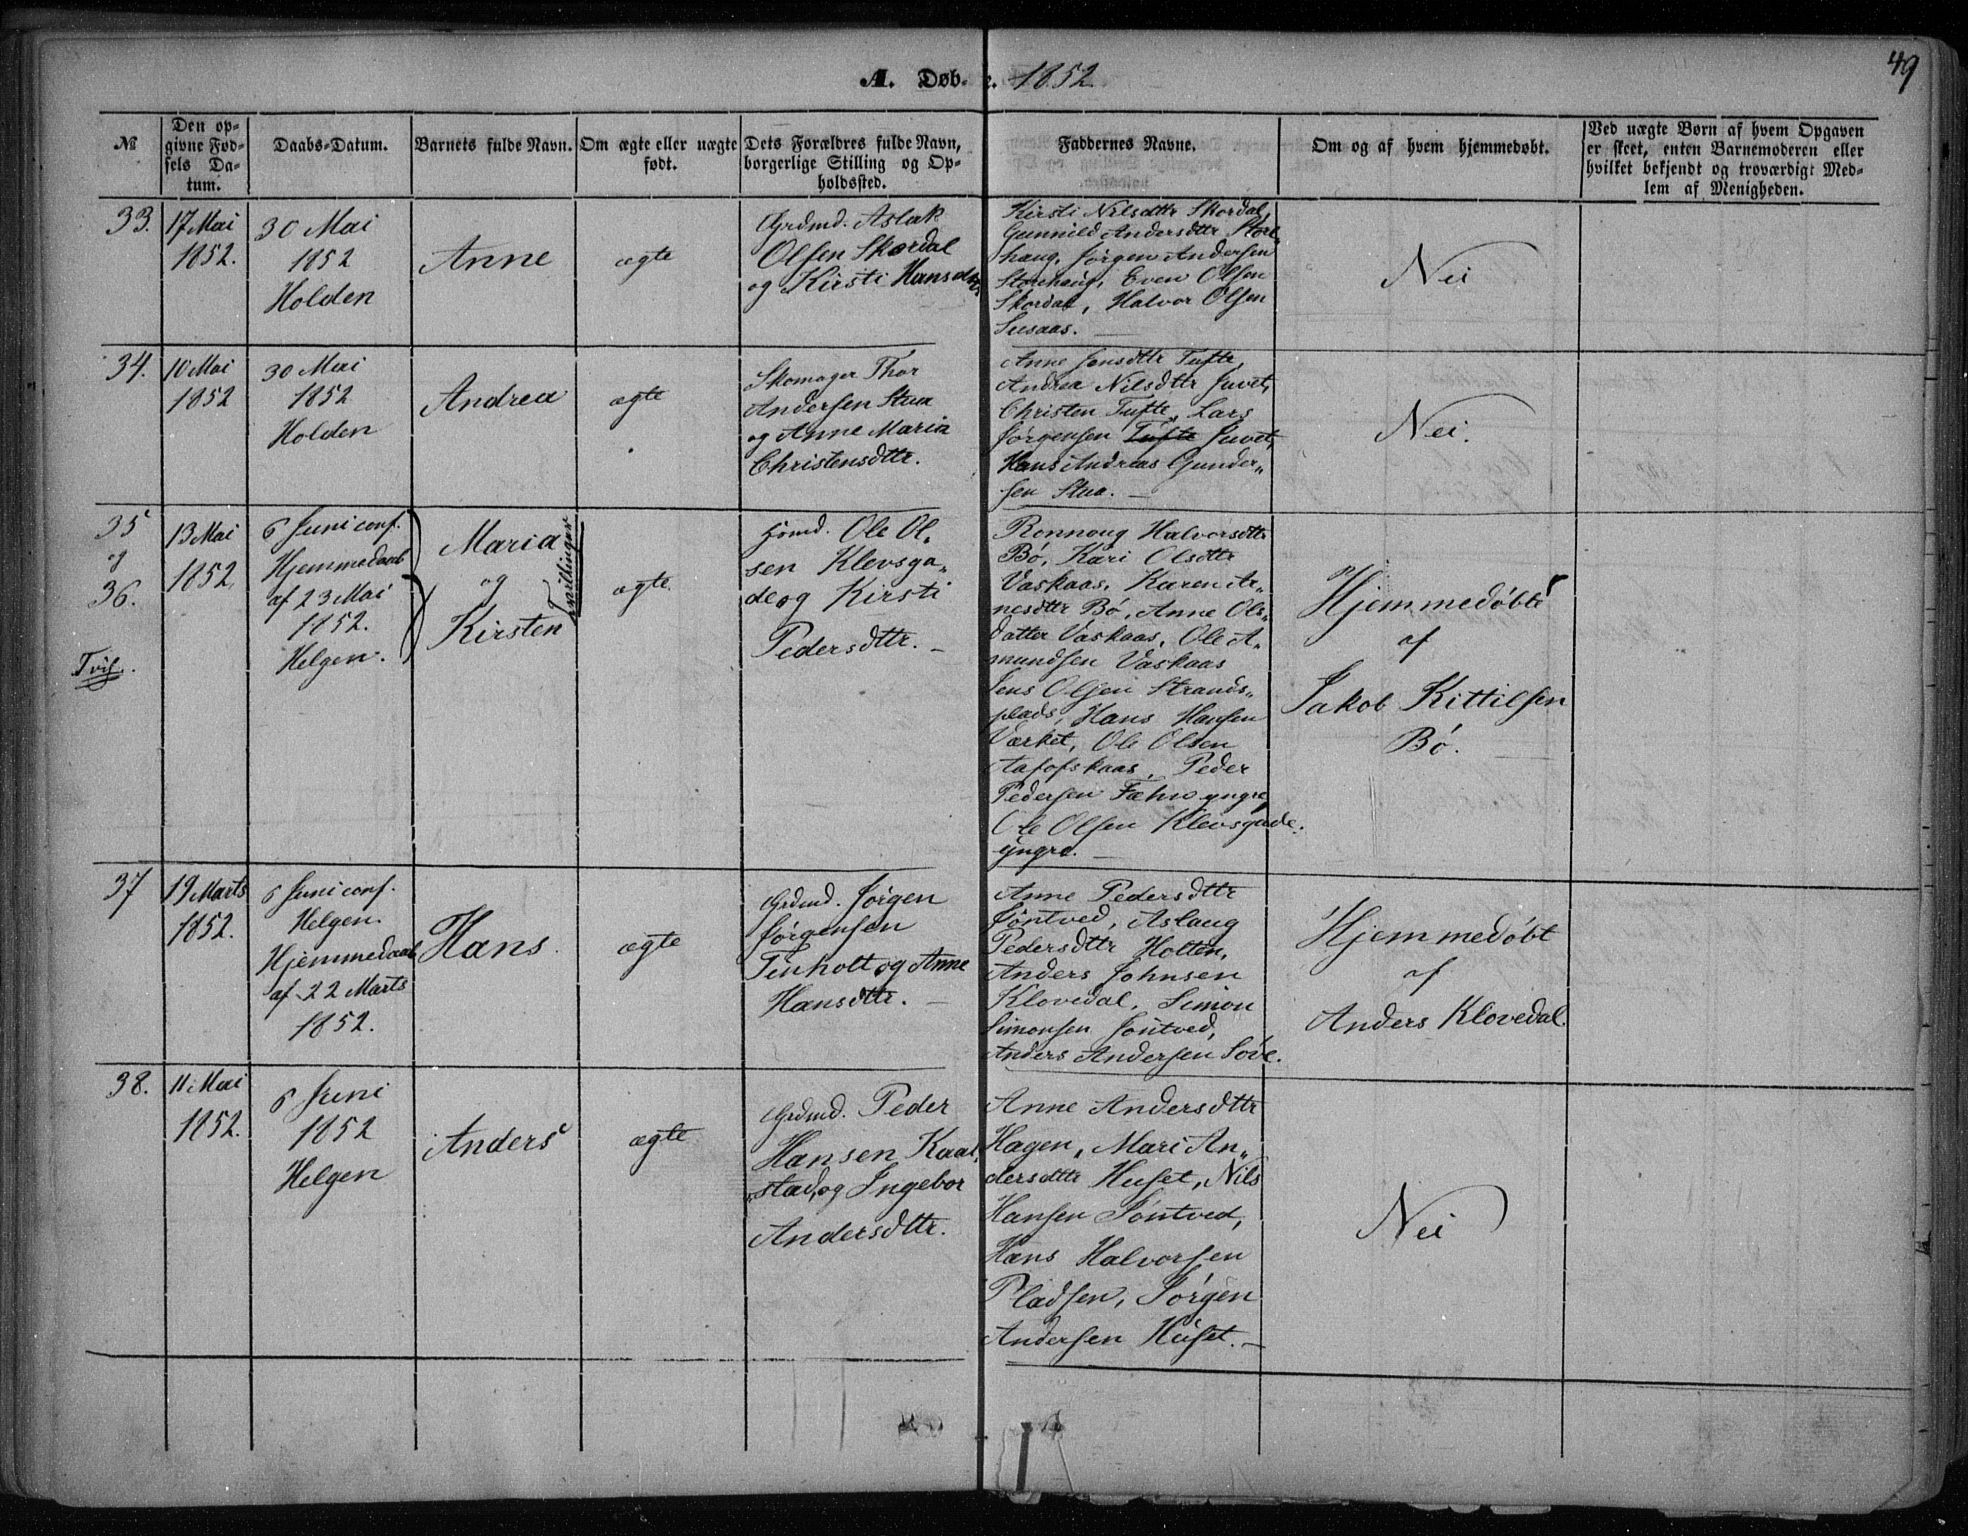 49
A. Døb- e. 1852.
№
Den op-
givne Fød-
sels Da-
tum.
Daabs-Datum.
Barnets fulde Navn.
Om ægte eller uægte
født.
Dets Forældres fulde Navn,
borgerlige Stilling og Op-
holdssted.
Faddernes Navne.
Om og af hvem hjemmedøbt.
Ved uægte Børn af hvem Opgaven
er skeet, enten Barnemoderen eller
hvilket bekjendt og troværdigt Med-
lem af Menigheden.
33.
17 Mai
1852.
30 Mai
1852
Holden
Anne
ægte
Grdmd. Aslak
Olsen Skordal
og Kirsti Hansdtr.
Kirsti Nilsdttr Skordal,
Gunnild Andersdttr Store-
haug, Jørgen Andersen
Storehaug, Even Olsen
Skordal, Halvor Olsen
Susaas. —
Nei
34.
10 Mai
1852
30 Mai
1852
Holden
Andrea
ægte
Skomager Thor
Andersen Stua
og Anne Maria
Christensdttr.
Anne Jensdttr Tufte,
Andrea Nilsdttr Juvet,
Christen Tufte, Lars
Jørgensen Tufte Juvet,
Hans Andreas Gunder„
sen Stua. —
Nei.
35
og
36.
Tvil.
13 Mai
1852,
6 Juni conf.
Hjemmedaab
af 23 Mai
1852.
Helgen.
Maria
og
Kirsten
Tvillinger
ægte.
Ole Ol.
sen Klevsga„
de og Kirsti
Pedersdttr. –
Ronnoug Halvorsdttr
Bø, Kari Olsdttr
Vaskaas, Karen Ar„
nesdttr Bø, Anne Ols„
datter Vaskaas, Ole A„
mundsen Vaskaas
Jens Olsen Strands„
plads, Hans Hansen
Værket, Ole Olsen
Peder
Pedersen Fæhn yngre,
Ole Olsen Klevsgade
yngre. —
Hjemmedøbte
af
Jakob Kittilsen
Bø.
37
19 Marts
1852.
6 Juni conf.
Helgen.
Hjemmedaab
af 22 Marts
1852.
Hans.
ægte
Grdmd. Jørgen
Jørgensen
Tinholt og Anne
Hansdttr. —
Anne Pedersdttr
Søntved, Aslaug
Pedersdttr Holten,
Anders Johnsen
Klovedal, Simon
Simonsen Søntved,
Anders Andersen Søve.
Hjemmedøbt
af
Anders Klovedal.
38.
11 Mai
1852.
6 Juni
1852
Helgen
Anders
ægte
Grdmd. Peder
Hansen Kaal„
„stad, og Ingebor
Andersdttr.
Anne Andersdttr
Hagen, Mari An„
dersdttr Huset, Nils
Hansen Søntved,
Hans Halvorsen
Pladsen, Jørgen
Andersen Huset. —
Nei